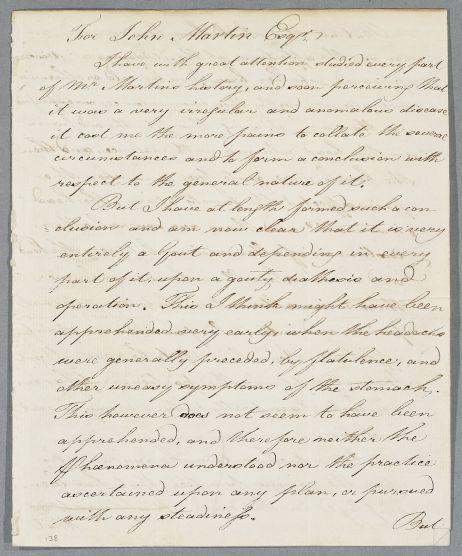 For John Martin Esqr.
I have with great attention studied every part
of Mr Martins history, and soon perceiving that
it was a very irregular and anomalous disease
it cost me the more pains to collate the several
circumstances and to form a conclusion with
respect to the general nature of it.
But I have at length formed such a con
clusion and am now clear that it is very
entirely a Gout and depending in every
part of it, upon a gouty diathesis and
operation. This I think might have been
apprehended very early, when the headachs
were generally preceded, by flatulence, and
other uneasy symptoms of the stomach.
This however does not seem to have been
apprehended, and therefore neither the
Phænomena understood nor the practice
ascertained upon any plan, or pursued
with any steadiness.
But
138